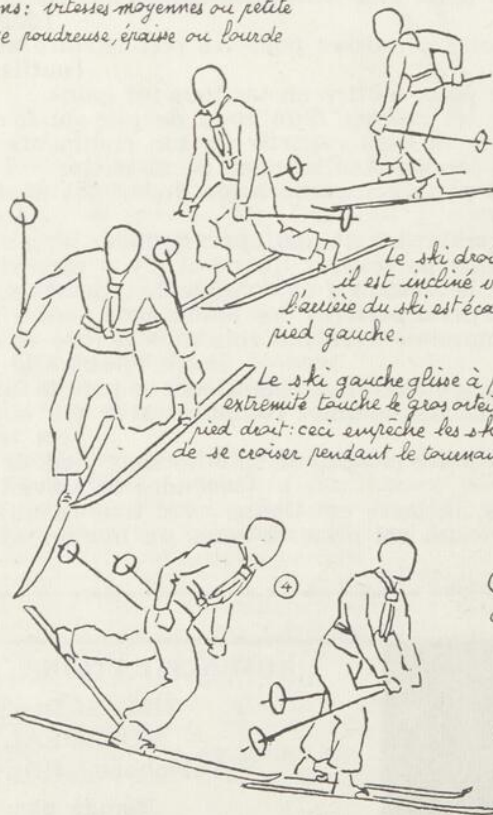 ns: vitesses moyennes ou petite
e poudreuse, épaisse ou lourde
Le ski droi
il est incliné v
l'arrière du ski est éca
pied gauche.
Le ski gauche glisse à p
extremité touche le gros ortei
pied droit: ceci empêche les sk
de se croiser pendant le tournau
4